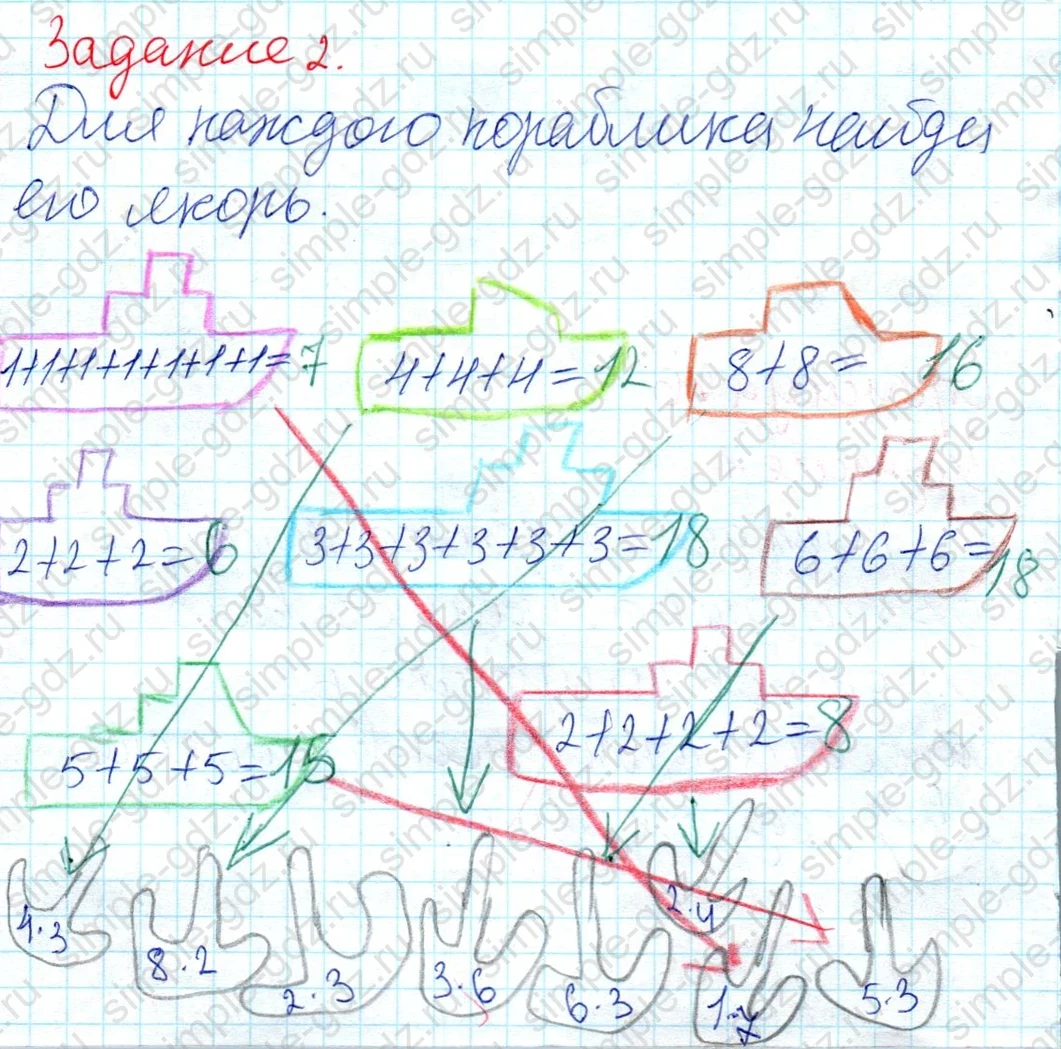 Задание 2.
Для каждого кораблика найди
его якорь.
1+1+1+1+1+1+1=7
4+4+4=12
8+8= 16
2+2+2=6
3+3+3+3+3+3=18
6+6+6=18
5+5+5=15
2+2+2+2=8
4·3
8·2
2·3
3·6
6·3
2·4
1·7
5·3
simple-gdz.ru